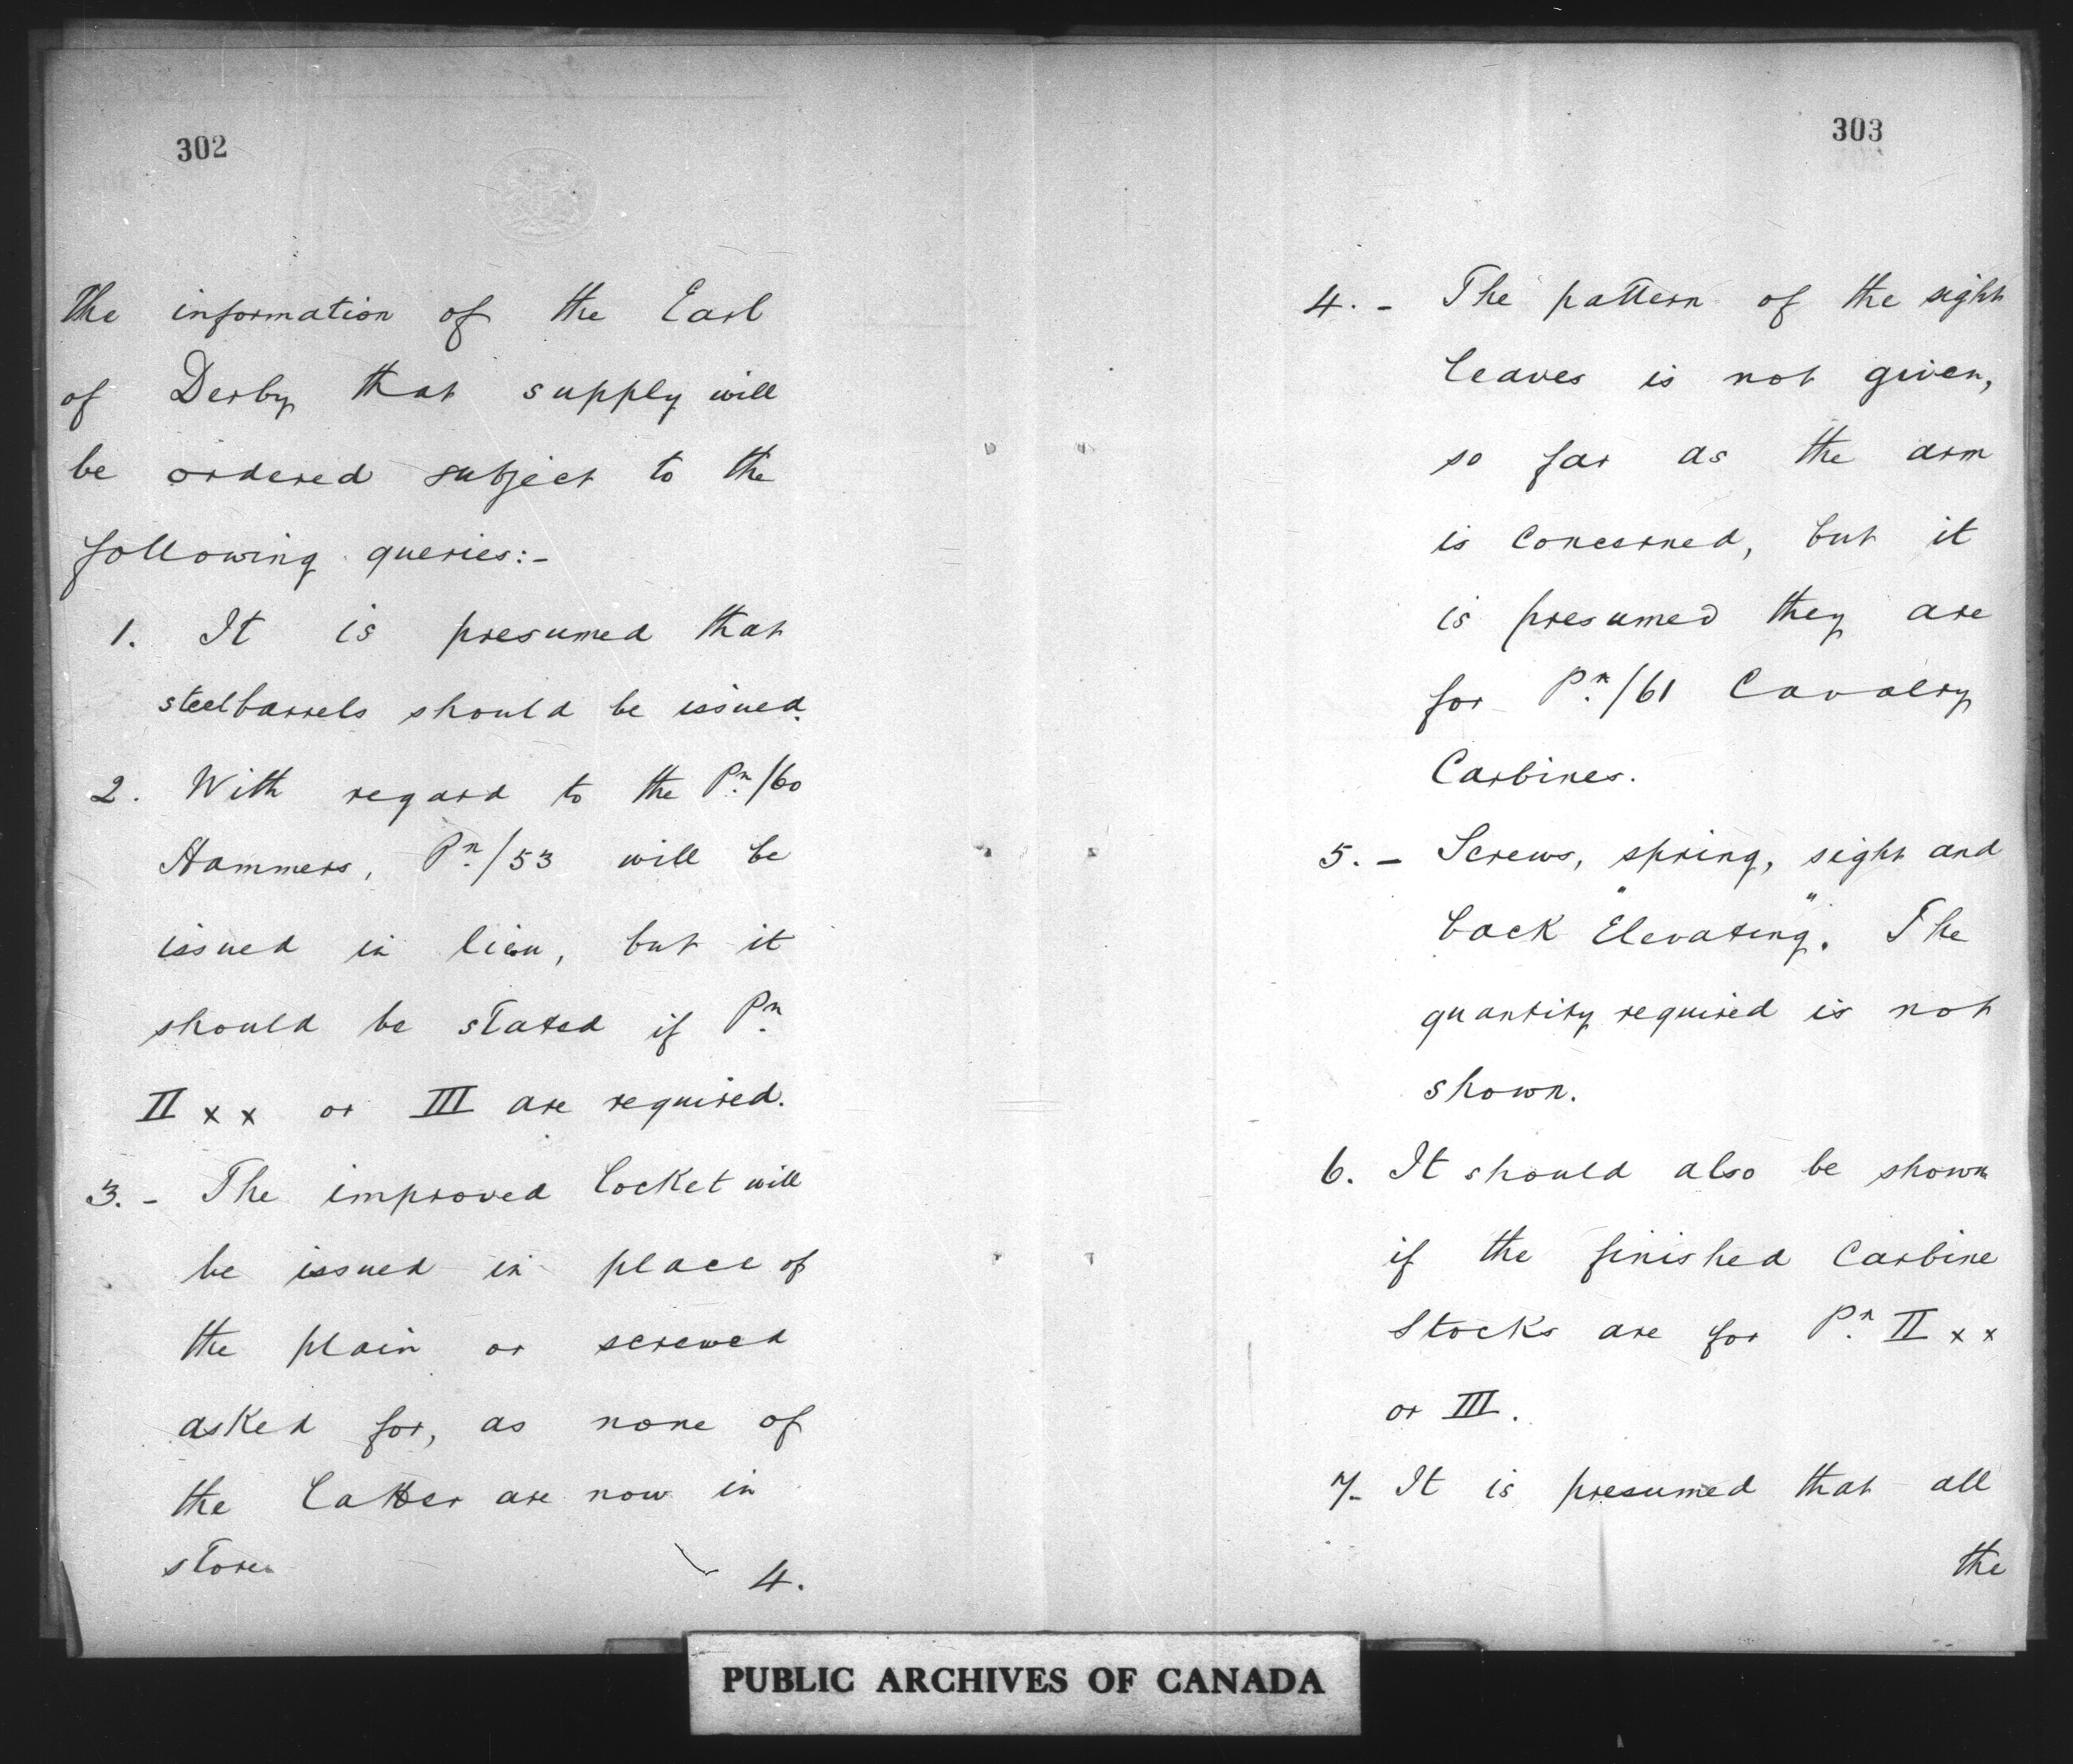 302
the information of the Earl
of Derby that supply will
be ordered subject to the
following queries:-
1. It is presumed that
steel barrels should be issued.
2. With regard to the Pn./60
Hammers, Pn./53 will be
issued in lieu, but it
should be stated if Pn.
II x x or III are required.
3. - The improved Locket will
be issued in place of
the plain or screwed
asked for, as none of
the latter are now in
store.
4.
303
4. - The pattern of the sight
leaves is not given,
so far as the arm
is concerned, but it
is presumed they are
for Pn./61 Cavalry
Carbines.
5. - Screws, spring, sight and
back "Elevating". The
quantity required is not
shown.
6. It should also be shown
if the finished Carbine
Stocks are for Pn. II x x
or III.
7- It is presumed that all
the
PUBLIC ARCHIVES OF CANADA